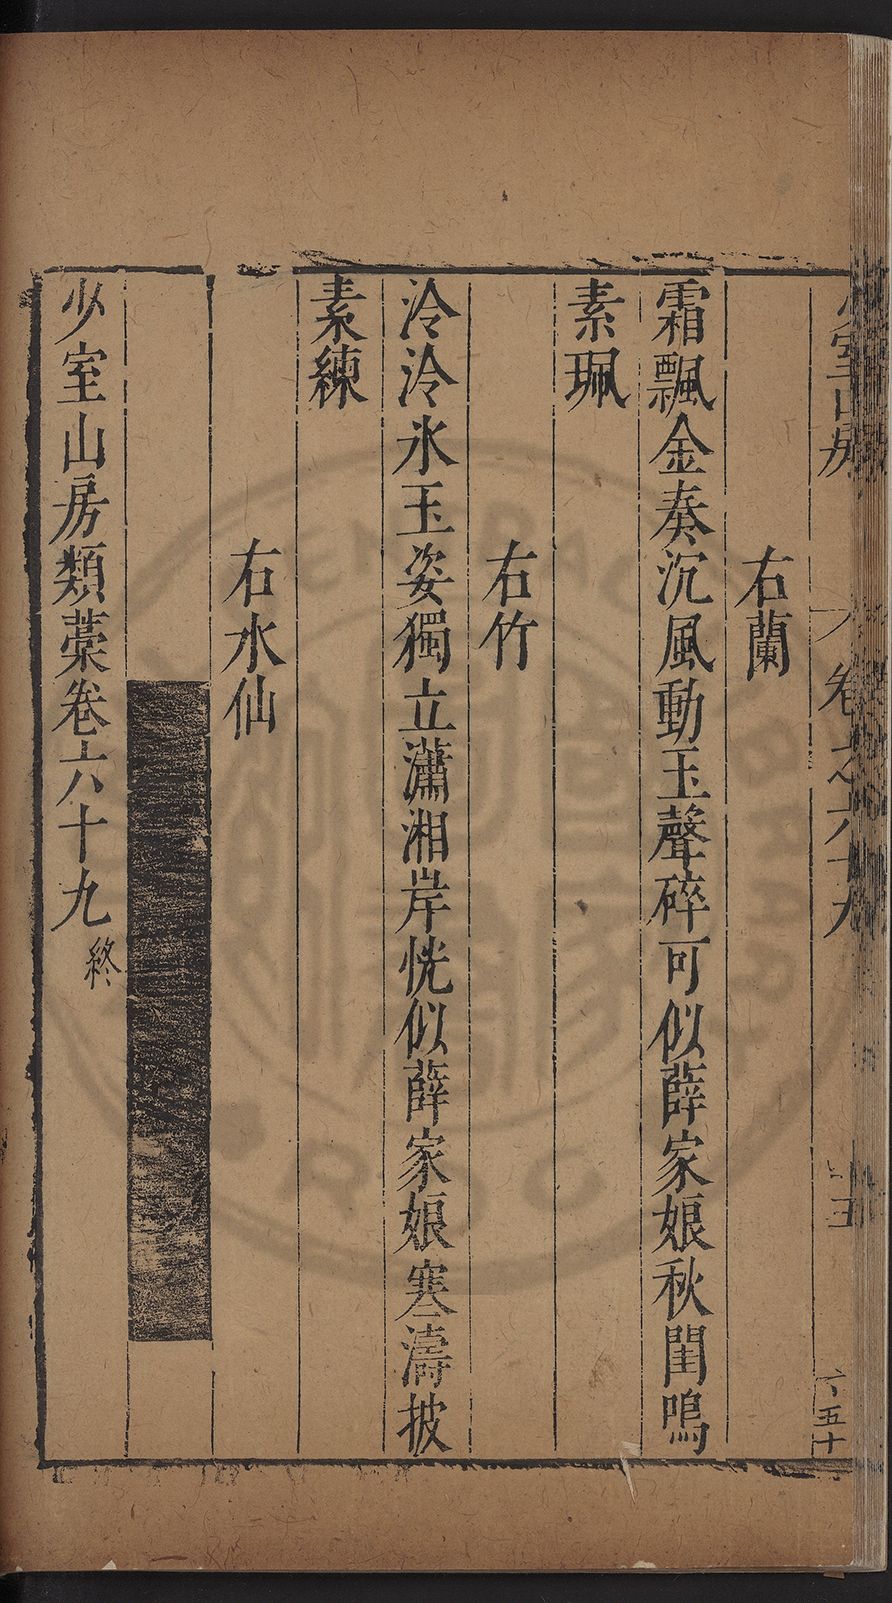 右蘭
霜飄金奏沉風動玉聲碎可似薛家娘秋閨鳴
素珮
右竹
泠泠氷玉姿獨立瀟湘岸恍似薛家娘寒濤披
素練
右水仙
少室山房類藁卷六十九終